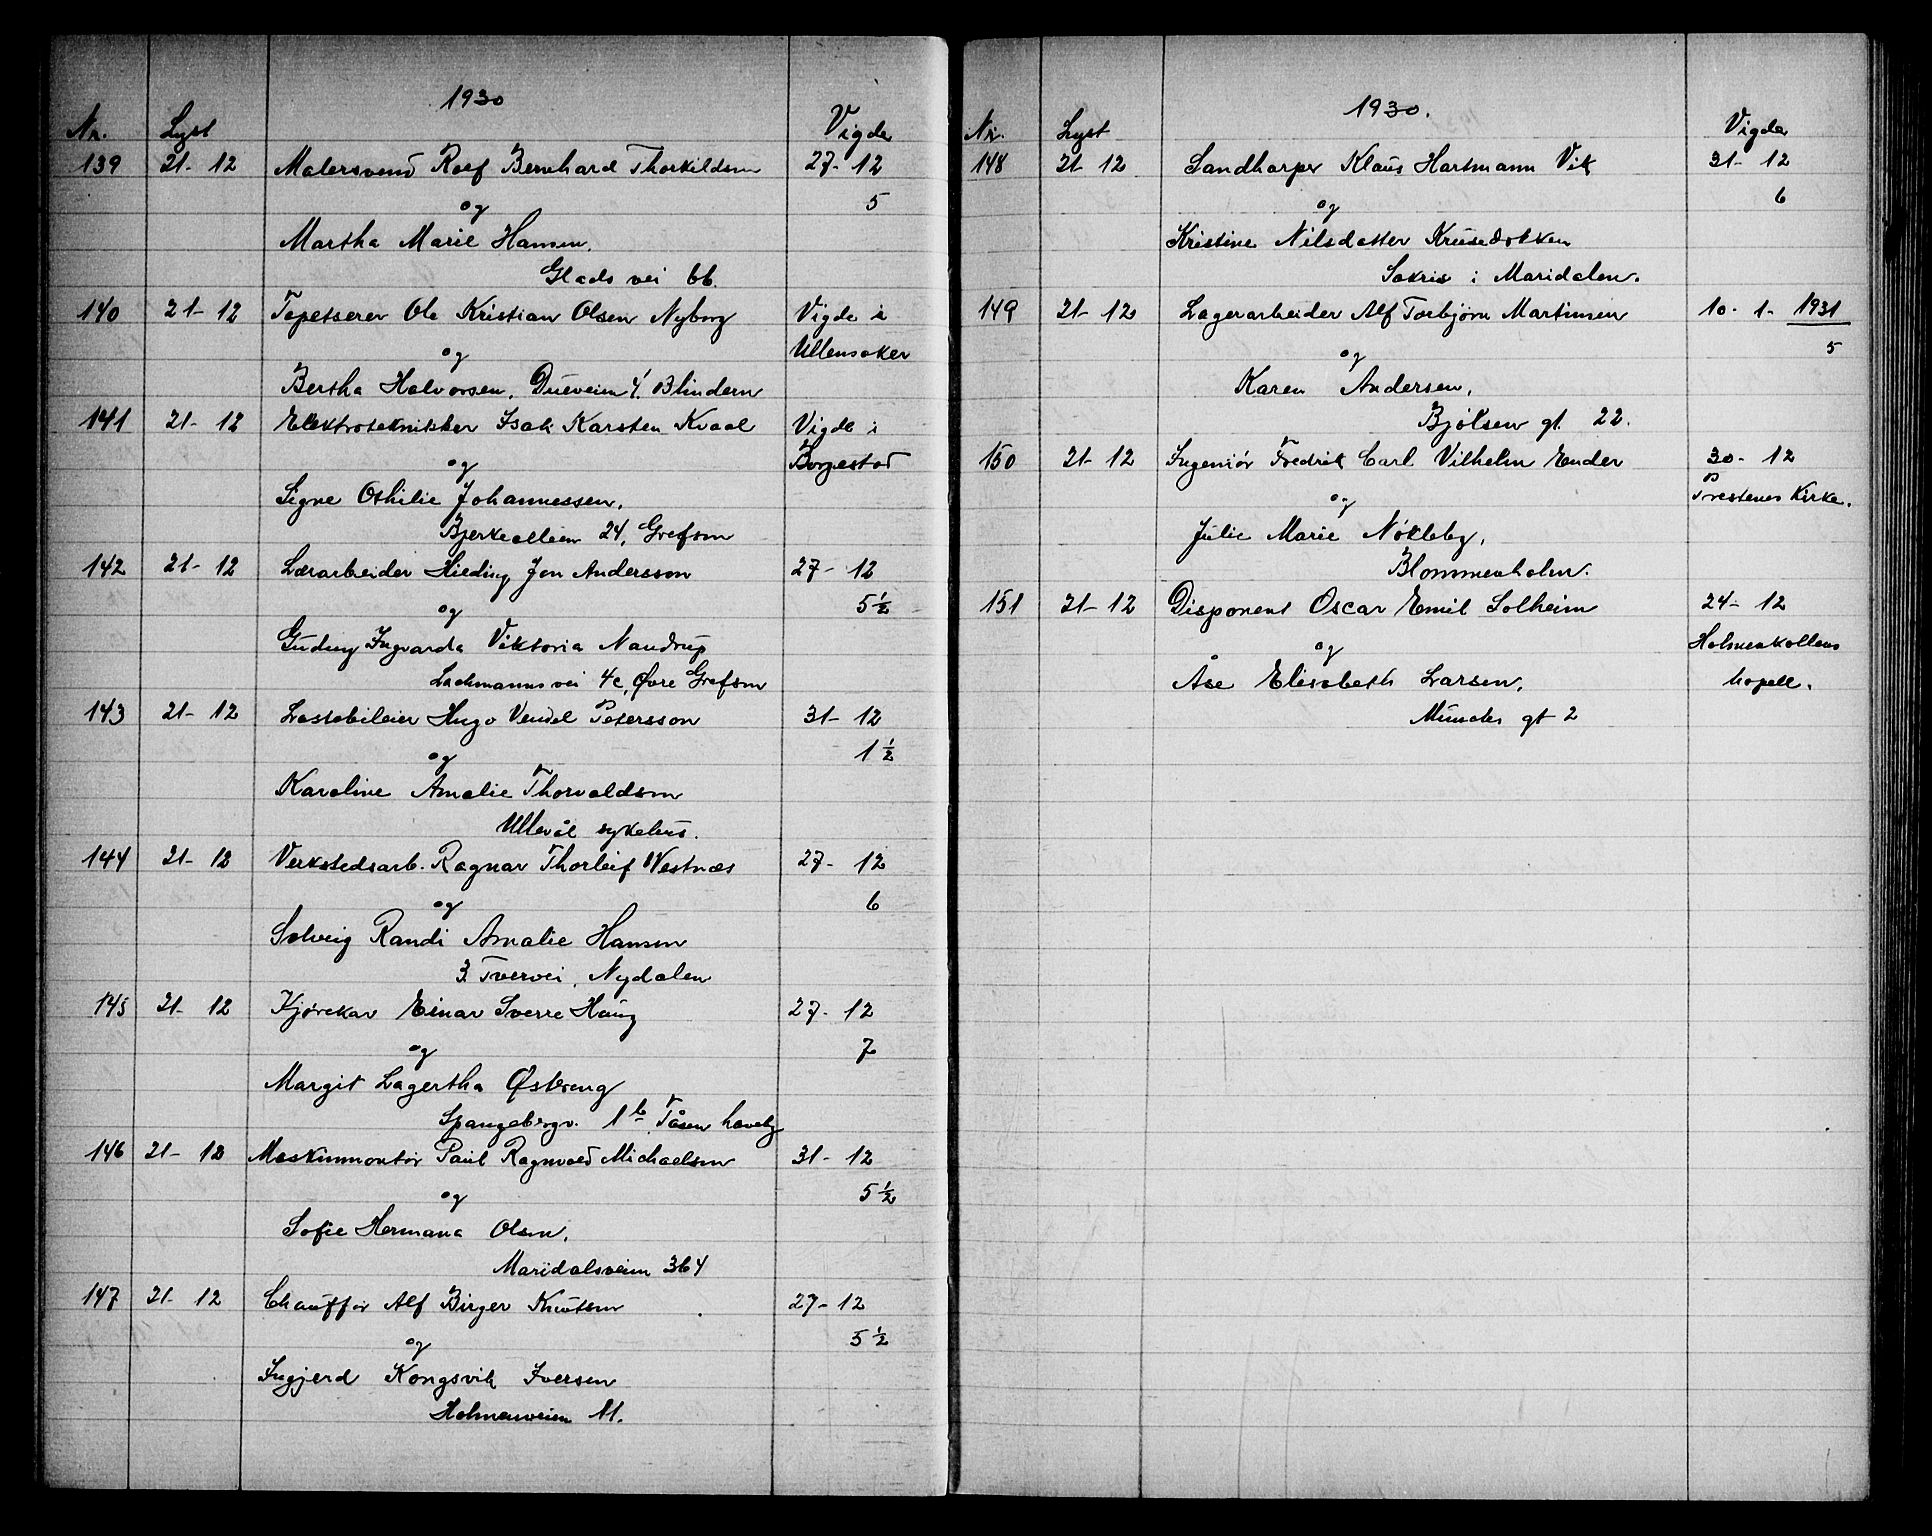 1930
Nr. Lyst Vigde
139 21-12 Malersvend Rolf Bernhard Thorkildsen 27-12
og 5
Martha Marie Hansen.
Glads vei 66.
140 21-12 Tapetserer Ole Kristian Olsen Nyborg Vigde i
og Ullensaker
Bertha Halvorsen, Dueveien 4. Blindern
141 21-12 Elektrotekniker Isak Karsten Kvaal Vigde i
og Borgestad
Signe Othilie Johannessen.
Bjerkealleen 24, Grefsen
142 21-12 Lærarbeider Hilding Jon Andersson 27-12
og 5 ½
Gudny Ingvarda Viktoria Nandrup
Lachmanns vei 4c, Øvre Grefsen
143 21-12 Lastebileier Hugo Vendel Petersson 31-12
og 1 ½
Karoline Amalie Thorvaldsen
Ullevål sykehus.
144 21-12 Verkstedsarb. Ragnar Thorleif Westnæs 27-12
og 6
Solveig Randi Amalie Hansen
3. Tvervei, Nydalen
145 21-12 Kjørekar Einar Sverre Haug 27-12
og 7
Margit Lagertha Østereng
Spangebergv. 1 b Tåsen haveby
146 21-12 Maskinmontør Paul Ragnvald Michaelsen 31-12
og 5 ½
Sofie Hermana Olsen.
Maridalsveien 364
147 21-12 Chauffør Alf Birger Knutsen 27-12
og 5 ½
Ingjerd Kongsvik Iversen
Holmenveien 11.
1930.
Nr. Lyst Vigde
148 21-12 Klaus Hartmann Vik 31-12
og 6
Kristine Nilsdatter Krusedokken
i Maridalen.
149 21-12 Lagerarbeider Alf Torbjørn Martinsen 10-1-1931
og 5
Karen Andersen,
Bjølsen gt 22.
150 21-12 Ingeniør Fredrik Carl Vilhelm Ender 30-12
og Prestenes Kirke.
Julie Marie Nøkleby,
Blommenholm.
151 21-12 Disponent Oscar Emil Solheim 24-12
og Holmenkollens
Åse Elisabeth Larsen, kapell.
Munchs gt 2